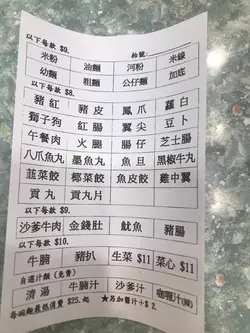 以下每款 $9.
枱號:
米粉 油麵 河粉 米線
幼麵 粗麵 公仔麵 加底
以下每款 $8.
豬紅 豬皮 鳳爪 蘿白
獅子狗 紅腸 翼尖 豆卜
午餐肉 火腿 腸仔 芝士腸
八爪魚丸 墨魚丸 魚旦 黑椒牛丸
韮菜餃 椰菜餃 魚皮餃 雞中翼
貢丸 貢丸片
以下每款 $9.
沙爹牛肉 金錢肚 魷魚 豬腸
以下每款 $10.
牛腩 豬扒 生菜 $11 菜心 $11
自選汁類 (免費) ★另加醬汁+$2.
清湯 牛腩汁 沙爹汁 咖喱汁(辣)
每碗麵最低消費 $25. 起